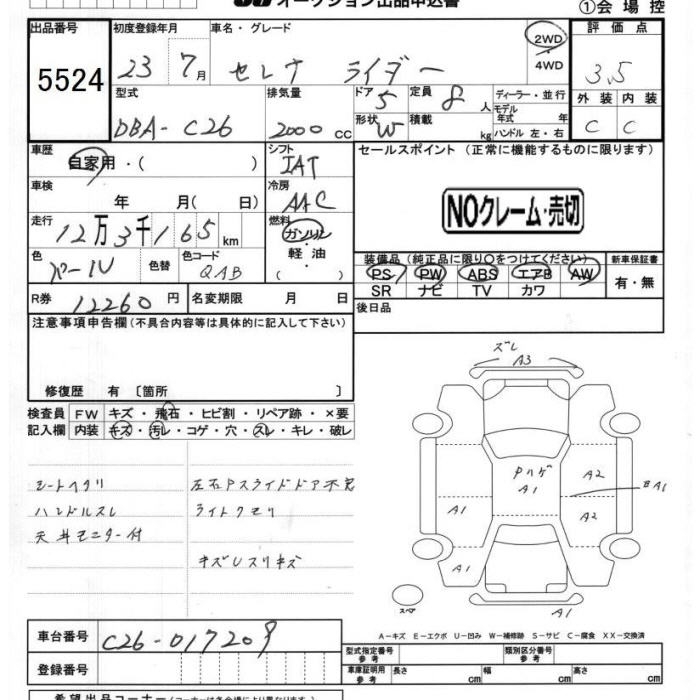 オークション出品申込書
①会場控
出品番号 初度登録年月 車名・グレード 2WD ・ 4WD 評価点
5524 23 7月 セレナ ライダー 3.5
型式 排気量 ドア 5 定員 8人 ディーラー・並行 外装 内装
DBA-C26 2000cc 形状 W 積載 kg モデル年式 年 ハンドル 左・右 C C
車歴 自家用・( ) シフト IAT セールスポイント (正常に機能するものに限ります)
車検 年 月( 日) 冷房 AAC
NOクレーム・売切
走行 12万3千165km 燃料 ガソリン・軽油・( )
色 パール 色替 色コード QAB
装備品 (純正品に限り○をつけてください) 新車保証書
PS PW ABS エアB AW 有・無
SR ナビ TV カワ
R券 12260円 名変期限 月 日 後日品
注意事項申告欄(不具合内容等は具体的に記入して下さい)
修復歴 有 〔箇所 〕
検査員 FW キズ・飛石・ヒビ割・リペア跡・×要
記入欄 内装 キズ・汚レ・コゲ・穴・スレ・キレ・破レ
シートヘタリ 左右Pスライドドア不良
ハンドルスレ ライトクモリ
天井モニター付
キズUスリキズ
ズレ
A3
A1
A2
BA1
A1
A2
A1
A1
A1
スペア
A-キズ E-エクボ U-凹み W-補修跡 S-サビ C-腐食 XX-交換済
車台番号 C26-017209
登録番号
型式指定番号 参考 類別区分番号 参考
車庫証明用 参考 長さ cm 幅 cm 高さ cm
希望出品コーナー